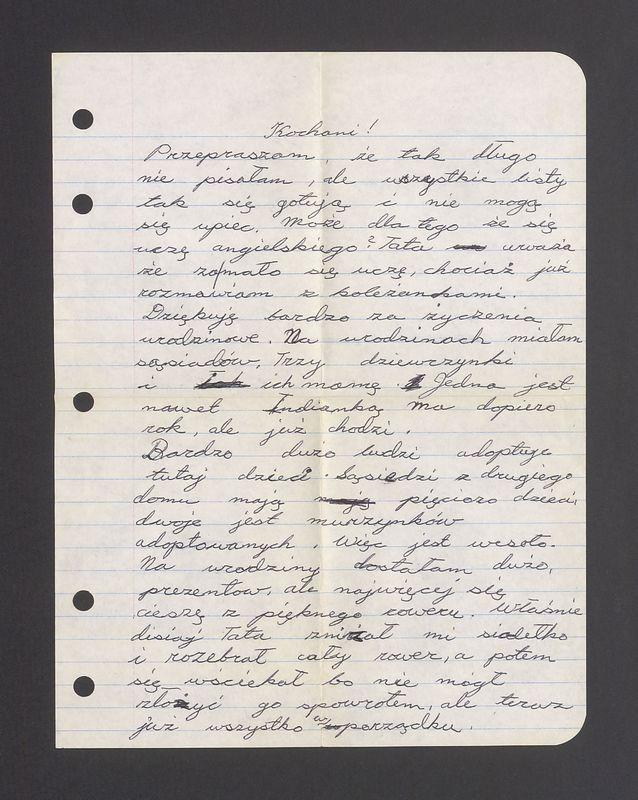 Kochani!
Przepraszam, że tak długo
nie pisałam, ale wszystkie listy
tak się gotują i nie mogą
się upiec. Może dla tego że się
uczę angielskiego? Tata uważa
że za mało się uczę, chociaż już
rozmawiam z koleżankami.
Dziękuję bardzo za życzenia
urodzinowe. Na urodzinach miałam
sąsiadów, Trzy dziewczynki
i ich mamę. Jedna jest
nawet Indianką ma dopiero
rok, ale już chodzi.
Bardzo dużo ludzi adoptuje
tutaj dzieci. Sąsiedzi z drugiego
domu mają pięcioro dzieci,
dwoje jest murzynków
adoptowanych. Więc jest wesoło.
Na urodziny dostałam dużo,
prezentow, ale najwięcej się
cieszę z pięknego roweru. Właśnie
disiaj Tata zniżał mi siodełko
i rozebrał cały rower, a potem
się wsciekał bo nie mógł
złożyć go spowrotem, ale teraz
już wszystko w porządku.